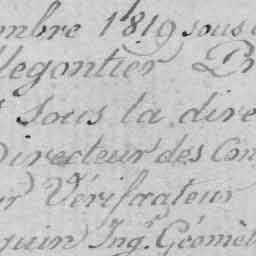 mbre 1819 sous
legontier
Sous la dire
Directeur des Con
r Vérificateur
quin Ingr. Géomèt